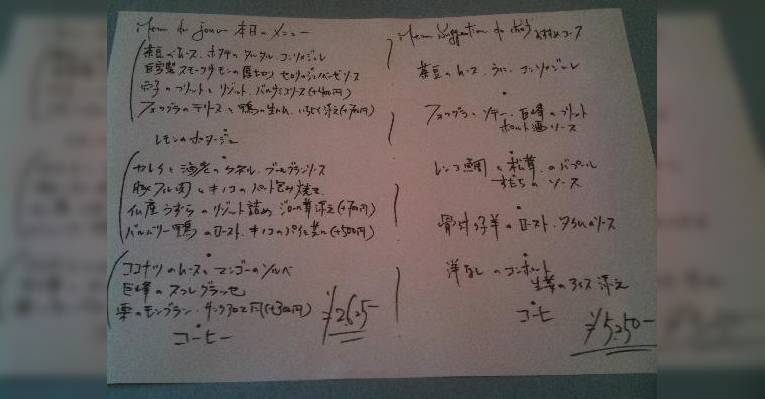 Menu du jour 本日のメニュー
茶豆のムース、ホタテのタルタル、コンソメジュレ
自家製スモークサーモンの厚切り セロリのジュレ ソース
穴子のフリットとリゾット、バルサミコソース(+400円)
フォアグラのテリーヌと鴨の生ハム、いちじく添え(+700円)
レモンのポタージュ
カレイと海老のクネル、ブールブランソース
豚フィレ肉とキノコのパート包み焼き
仏産うずらのリゾット詰め 添え(+700円)
バルバリー鴨のロースト、キノコのパイと共に(+500円)
ココナツのムースとマンゴーのソルベ
巨峰のスープ グラッセ
栗のモンブラン、(+300円)
コーヒー
¥2625
Menu Suggestion du chef おすすめコース
茶豆のムース、うに、コンソメジュレ
フォアグラソテー、巨峰のフリット
ポルト酒ソース
レンコ鯛と松茸のバプール
すだちのソース
骨付仔羊のロースト、タイムのソース
洋なしのコンポート
生姜のアイス添え
コーヒ
¥5,250-